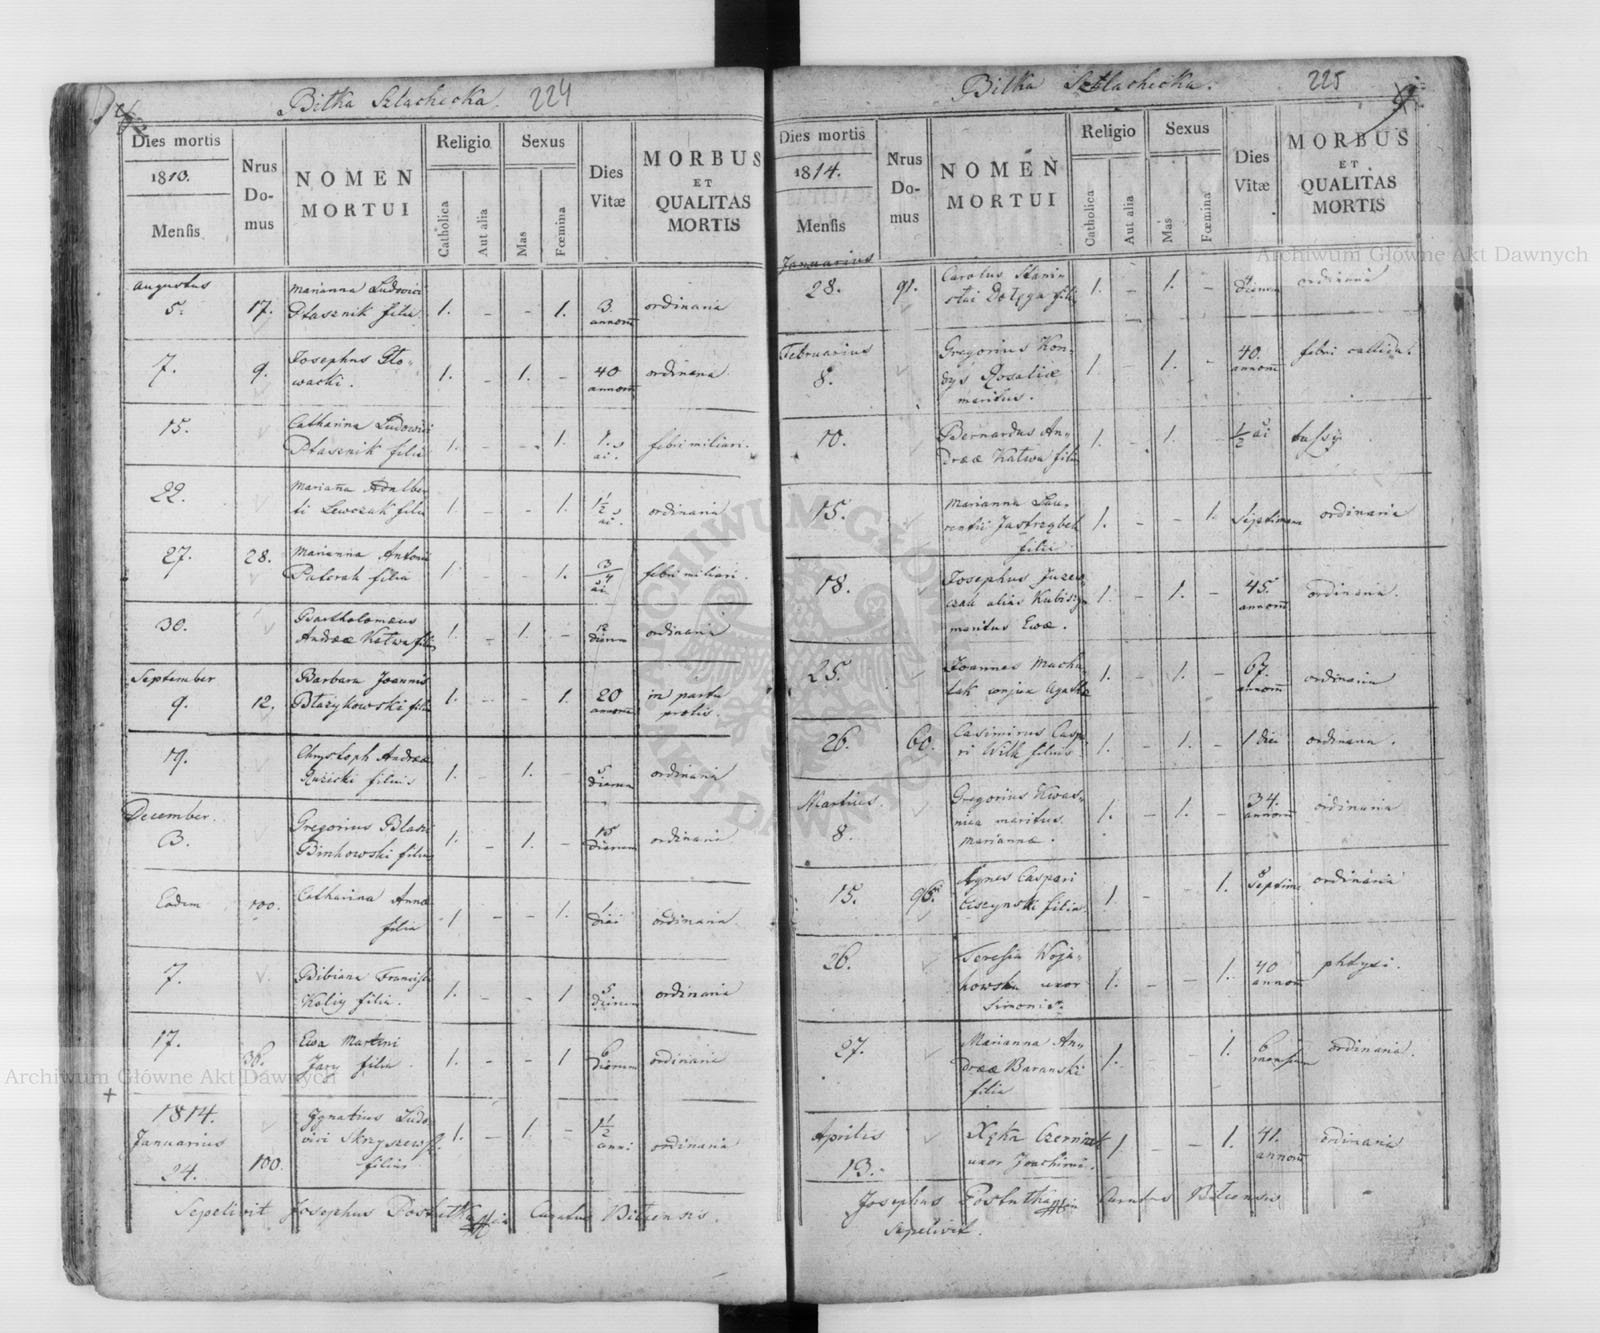 Bitka Szlachecka. 224
Dies mortis
1810.
Mensis
Nrus
Do-
mus
NOMEN
MORTUI
Religio
Catholica
Aut alia
Sexus
Mas
Fœmina
Dies
Vitæ
MORBUS
ET
QUALITAS
MORTIS
Augustus
5. 17. Marianna Ludovici
Ptasznik filia 1. - - 1. 3. annorũ ordinaria
7. 9. Josephus Gło-
wacki. 1. - 1. - 40 annorũ ordinaria
15. Catharina Ludovici
Ptasznik filia 1. - - 1. febri miliari.
22. Marianna Adalber-
ti Lewczak filia 1. - - 1. 1 1/2 ordinaria
27. 28. Marianna Antonii
Paterak filia 1. - - 1. 3/4 febri miliari.
30. Bartholomæus
Andreæ Katwa filius 1. - 1. - 12 dierum ordinaria
September
9. 12. Barbara Joannis
Błazykowski filia 1. - - 1. 20 annorũ in partu
prolis.
19. Chrystoph Andreæ
Ruzicki filius 1. - 1. - 5 dierum ordinaria
December.
3. Gregorius Blasii
Binkowski filius 1. - 1. - 15 dierum ordinaria
Eodem 100. Catharina Annæ
filia 1 - - 1. 1 diei ordinaria
7. Bibiana Francisci
Kaliy filia. 1. - - 1 5 dierum ordinaria
17. 36. Ewa Martini
Jary filia 1. - - 1 6 dierum ordinaria
1814.
Januarius
24. 100. Ignatius Ludo-
vici
filius 1. - 1. - 1 1/2 anni ordinaria
Sepelivit Josephus Curatus Bitcensis.
Bitka Szlachecka. 225
Dies mortis
1814.
Mensis
Nrus
Do-
mus
NOMEN
MORTUI
Religio
Catholica
Aut alia
Sexus
Mas
Fœmina
Dies
Vitæ
MORBUS
ET
QUALITAS
MORTIS
Januarius
28. 91. Carolus Stanis-
lai Dołęga filius 1. - 1. - 4 dierum ordinaria
Februarius
8. Gregorius Kon-
dys Rosaliæ
maritus. 1. - 1. - 40. annorũ febri callida.
10. Bernardus An-
dreæ Katwa filius 1. - 1. - 1/2 ai tussy
15. Marianna Lau-
rentii Jastrzębek
filia 1. - - 1. Septimana ordinaria
18. Josephus
alias Kubiszyn
maritus Ewæ. 1. - 1. - 45. annorũ ordinaria.
25. Joannes Macha-
lak conjux Agathæ 1. - 1. - 67. annorũ ordinaria
26. 60. Casimirus Caspa-
ri Wilk filius 1. - 1. - 1 diei ordinaria.
Martius.
8. Gregorius Kwas-
nica maritus
Mariannæ. 1. - 1. - 34. annorũ ordinaria
15. 96. Agnes Caspari
Ciszynski filia 1. - - 1. ordinaria
26. Teresia Woja-
kowska uxor
Simonis. 1. - - 1. 40 annorũ phtysi.
27. Marianna An-
dreæ Baranski
filia 1. - - 1. 6 mensium ordinaria.
Aprilis
13. Czerniak
uxor Joachimi. 1. - - 1. 41. annorũ ordinaria
Josephus Curatus Bitcensis
sepelivit.
Archiwum Główne Akt Dawnych
Archiwum Główne Akt Dawnych
ARCHIWUM GŁÓWNE AKT DAWNYCH